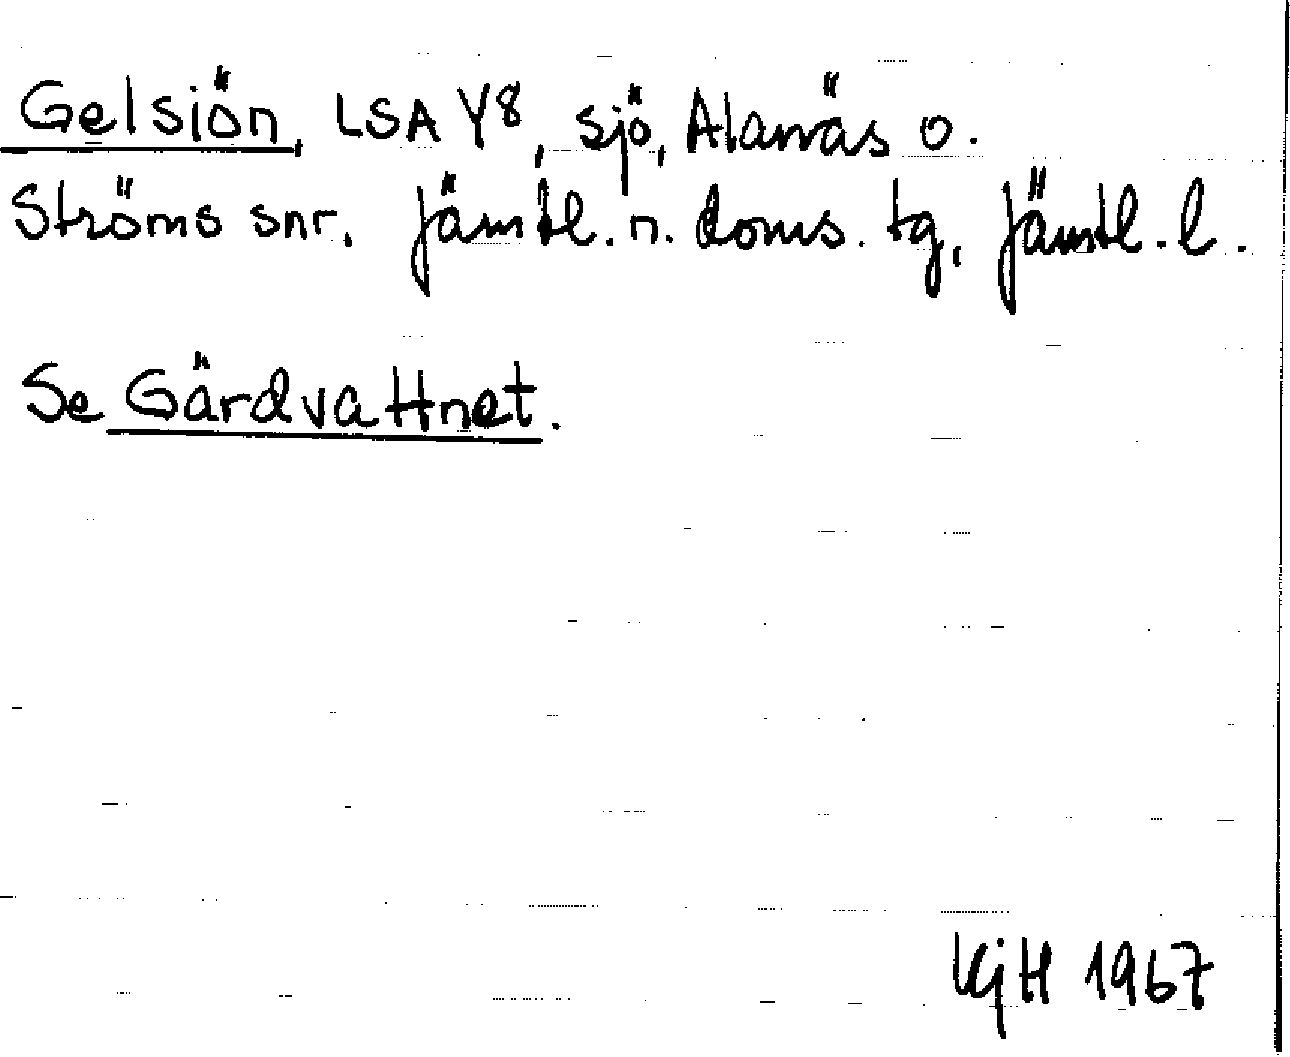 Gelsiön, LSA Y8, sjö, Alanäs o.
Ströms snr. Jämtl. n. doms. tg, Jämtl. l.
Se Gärdvattnet.
KjH 1967